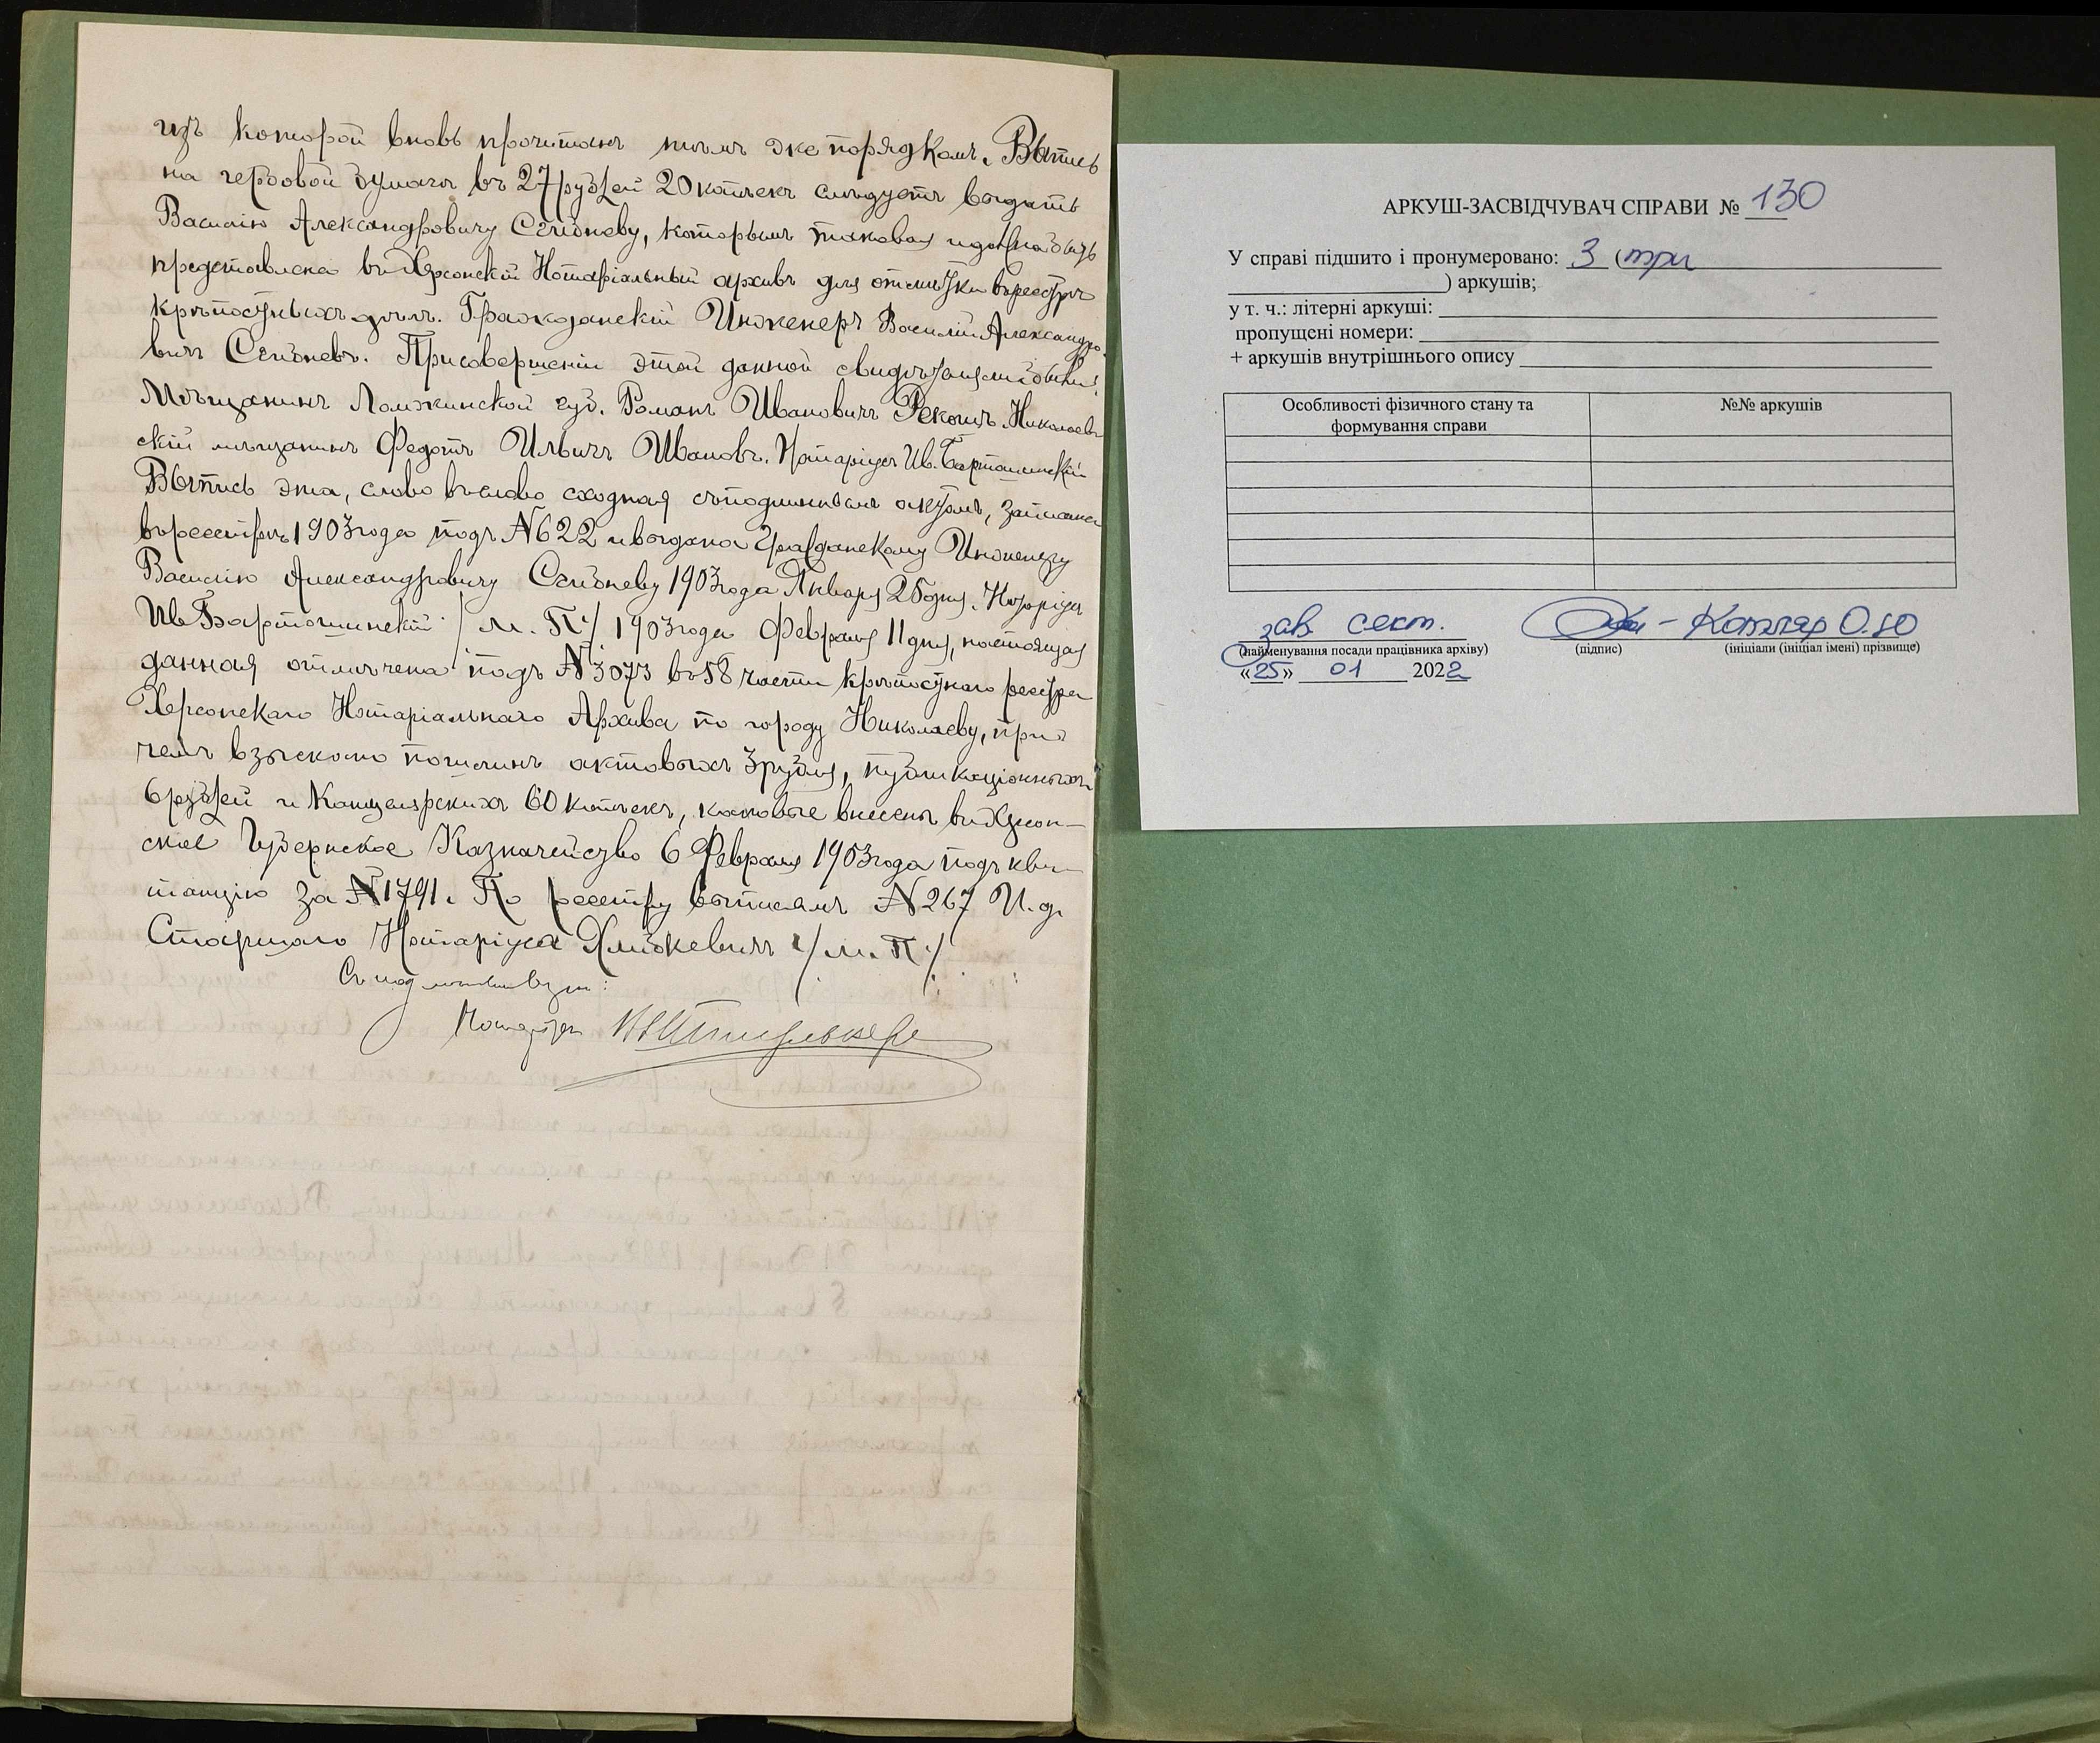 изъ которой вновь прочитанъ тѣмъ же порядкомъ. Выпись
на гербовой бумагѣ въ 27 рублей 20 копѣекъ слѣдуетъ выдать
Василію Александровичу Селѣневу, которымъ таковая и должна быть
представлена въ Херсонскій Нотаріальный архивъ для отмѣтки въ реестрѣ
крѣпостныхъ дѣлъ. Гражданскій Инженеръ Василій Александро-
вичъ. При совершеніи этой данной свидѣтелями были:
Мѣщанинъ Ломжинской губ. Романъ Ивановичъ Николаев-
скій мѣщанинъ Федотъ Ильичъ Ивановъ. Нотаріусъ Ив. Бартошинскій
Выпись эта, слово въ слово сходная съ подлиннымъ актомъ, записана
въ реестръ 1903 года подъ N622 и выдана Гражданскому Инженеру
Василію Александровичу 1903 года Января 25 дня. Нотаріусъ
Ив Бартошинскій /М. П./ 1903 года Февраля 11 дня, настоящая
данная отмѣчена подъ N3073 въ 58 части крѣпостнаго реестра
Херсонскаго Нотаріальнаго Архива по городу Николаеву, при
чемъ взыскано пошлинъ актовыхъ 3 рубля, публикаціонныхъ
6 рублей и Канцелярскихъ 60 копѣекъ, каковые внесены въ Херсон-
ское Губернское Казначейство 6 Февраля 1903 года подъ кви-
танцію за N1791. По реестру выписямъ N267 И. д.
Старшаго Нотаріуса /М. П./
Съ подлиннымъ вѣрно:
Нотаріусъ
АРКУШ-ЗАСВІДЧУВАЧ СПРАВИ № 130
У справі підшито і пронумеровано: 3 (три
) аркушів;
у т. ч.: літерні аркуші:
пропущені номери:
+ аркушів внутрішнього опису
Особливості фізичного стану та формування справи
№№ аркушів
зав. сект. Котляр О.Ю
(найменування посади працівника архіву) (підпис) (ініціали (ініціал імені) прізвище)
«25» 01 2022